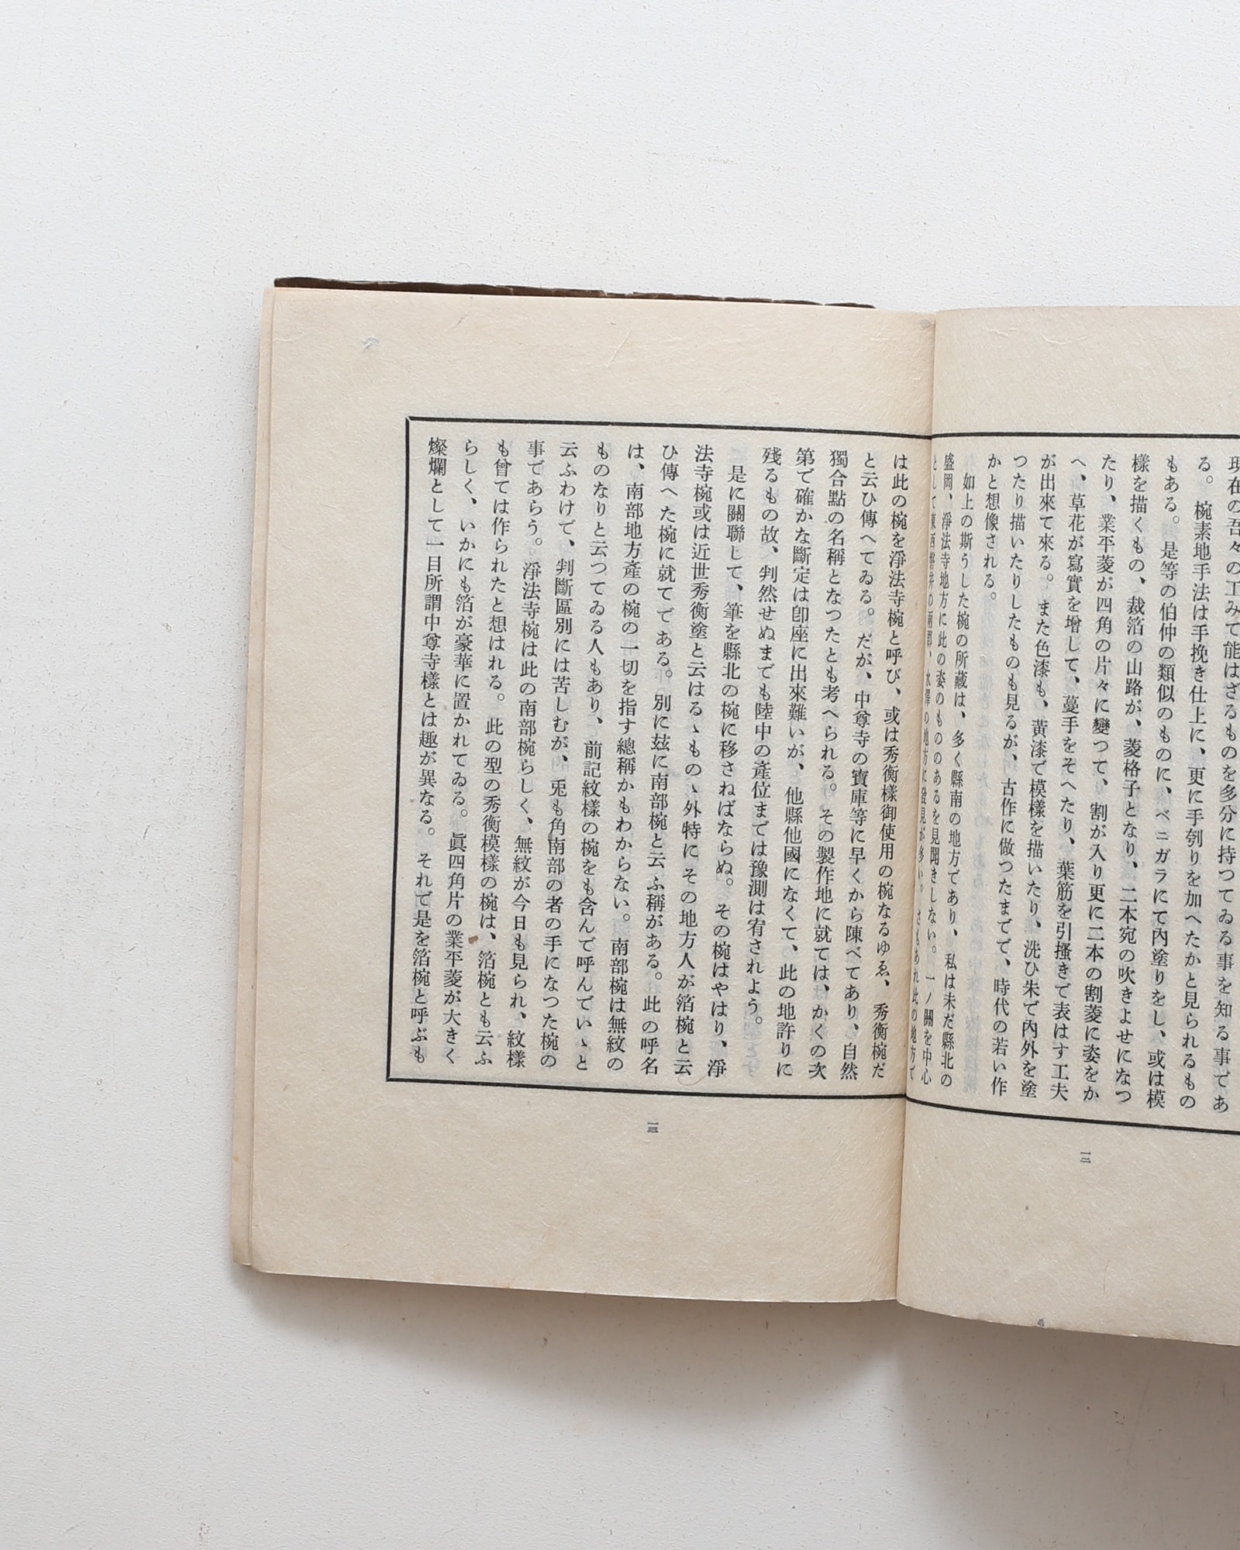 現在の吾々の工みで能はざるものを多分に持つてゐる事を知る事であ
る。椀素地手法は手挽き仕上に、更に手刳りを加へたかと見られるもの
もある。是等の伯仲の類似のものに、ベニガラにて內塗りをし、或は模
樣を描くもの、裁箔の山路が、菱格子となり、二本宛の吹きよせになつ
たり、業平菱が四角の片々に變つて、割が入り更に二本の割菱に姿をか
へ、草花が寫實を增して、蔓手をそへたり、葉筋を引搔きで表はす工夫
が出來て來る。また色漆も、黃漆で模樣を描いたり、洗ひ朱で內外を塗
つたり描いたりしたものも見るが、古作に倣つたまでで、時代の若い作
かと想像される。
如上の斯うした椀の所藏は、多く縣南の地方であり、私は未だ縣北の
盛岡、淨法寺地方に此の姿のもののあるを見聞きしない。一ノ關を中心
として東西磐井の兩郡、水澤の地方に發見が多い。さもあれ此の地方で
は此の椀を淨法寺椀と呼び、或は秀衡樣御使用の椀なるゆゑ、秀衡椀だ
と云ひ傳へてゐる。だが、中尊寺の寶庫等に早くから陳べてあり、自然
獨合點の名稱となつたとも考へられる。その製作地に就ては、かくの次
第で確かな斷定は卽座に出來難いが、他縣他國になくて、此の地許りに
殘るもの故、判然せぬまでも陸中の產位までは豫測は宥されよう。
是に關聯して、筆を縣北の椀に移さねばならぬ。その椀はやはり、淨
法寺椀或は近世秀衡塗と云はるゝもの、外特にその地方人が箔椀と云
ひ傳へた椀に就てである。別に玆に南部椀と云ふ稱がある。此の呼名
は、南部地方產の椀の一切を指す總稱かもわからない。南部椀は無紋の
ものなりと云つてゐる人もあり、前記紋樣の椀をも含んで呼んでいゝと
云ふわけで、判斷區別には苦しむが、兎も角南部の者の手になつた椀の
事であらう。淨法寺椀は此の南部椀らしく、無紋が今日も見られ、紋樣
も曾ては作られたと想はれる。此の型の秀衡模樣の椀は、箔椀とも云ふ
らしく、いかにも箔が豪華に置かれてゐる。眞四角片の業平菱が大きく
燦爛として一目所謂中尊寺樣とは趣が異なる。それで是を箔椀と呼ぶも
一二
一三